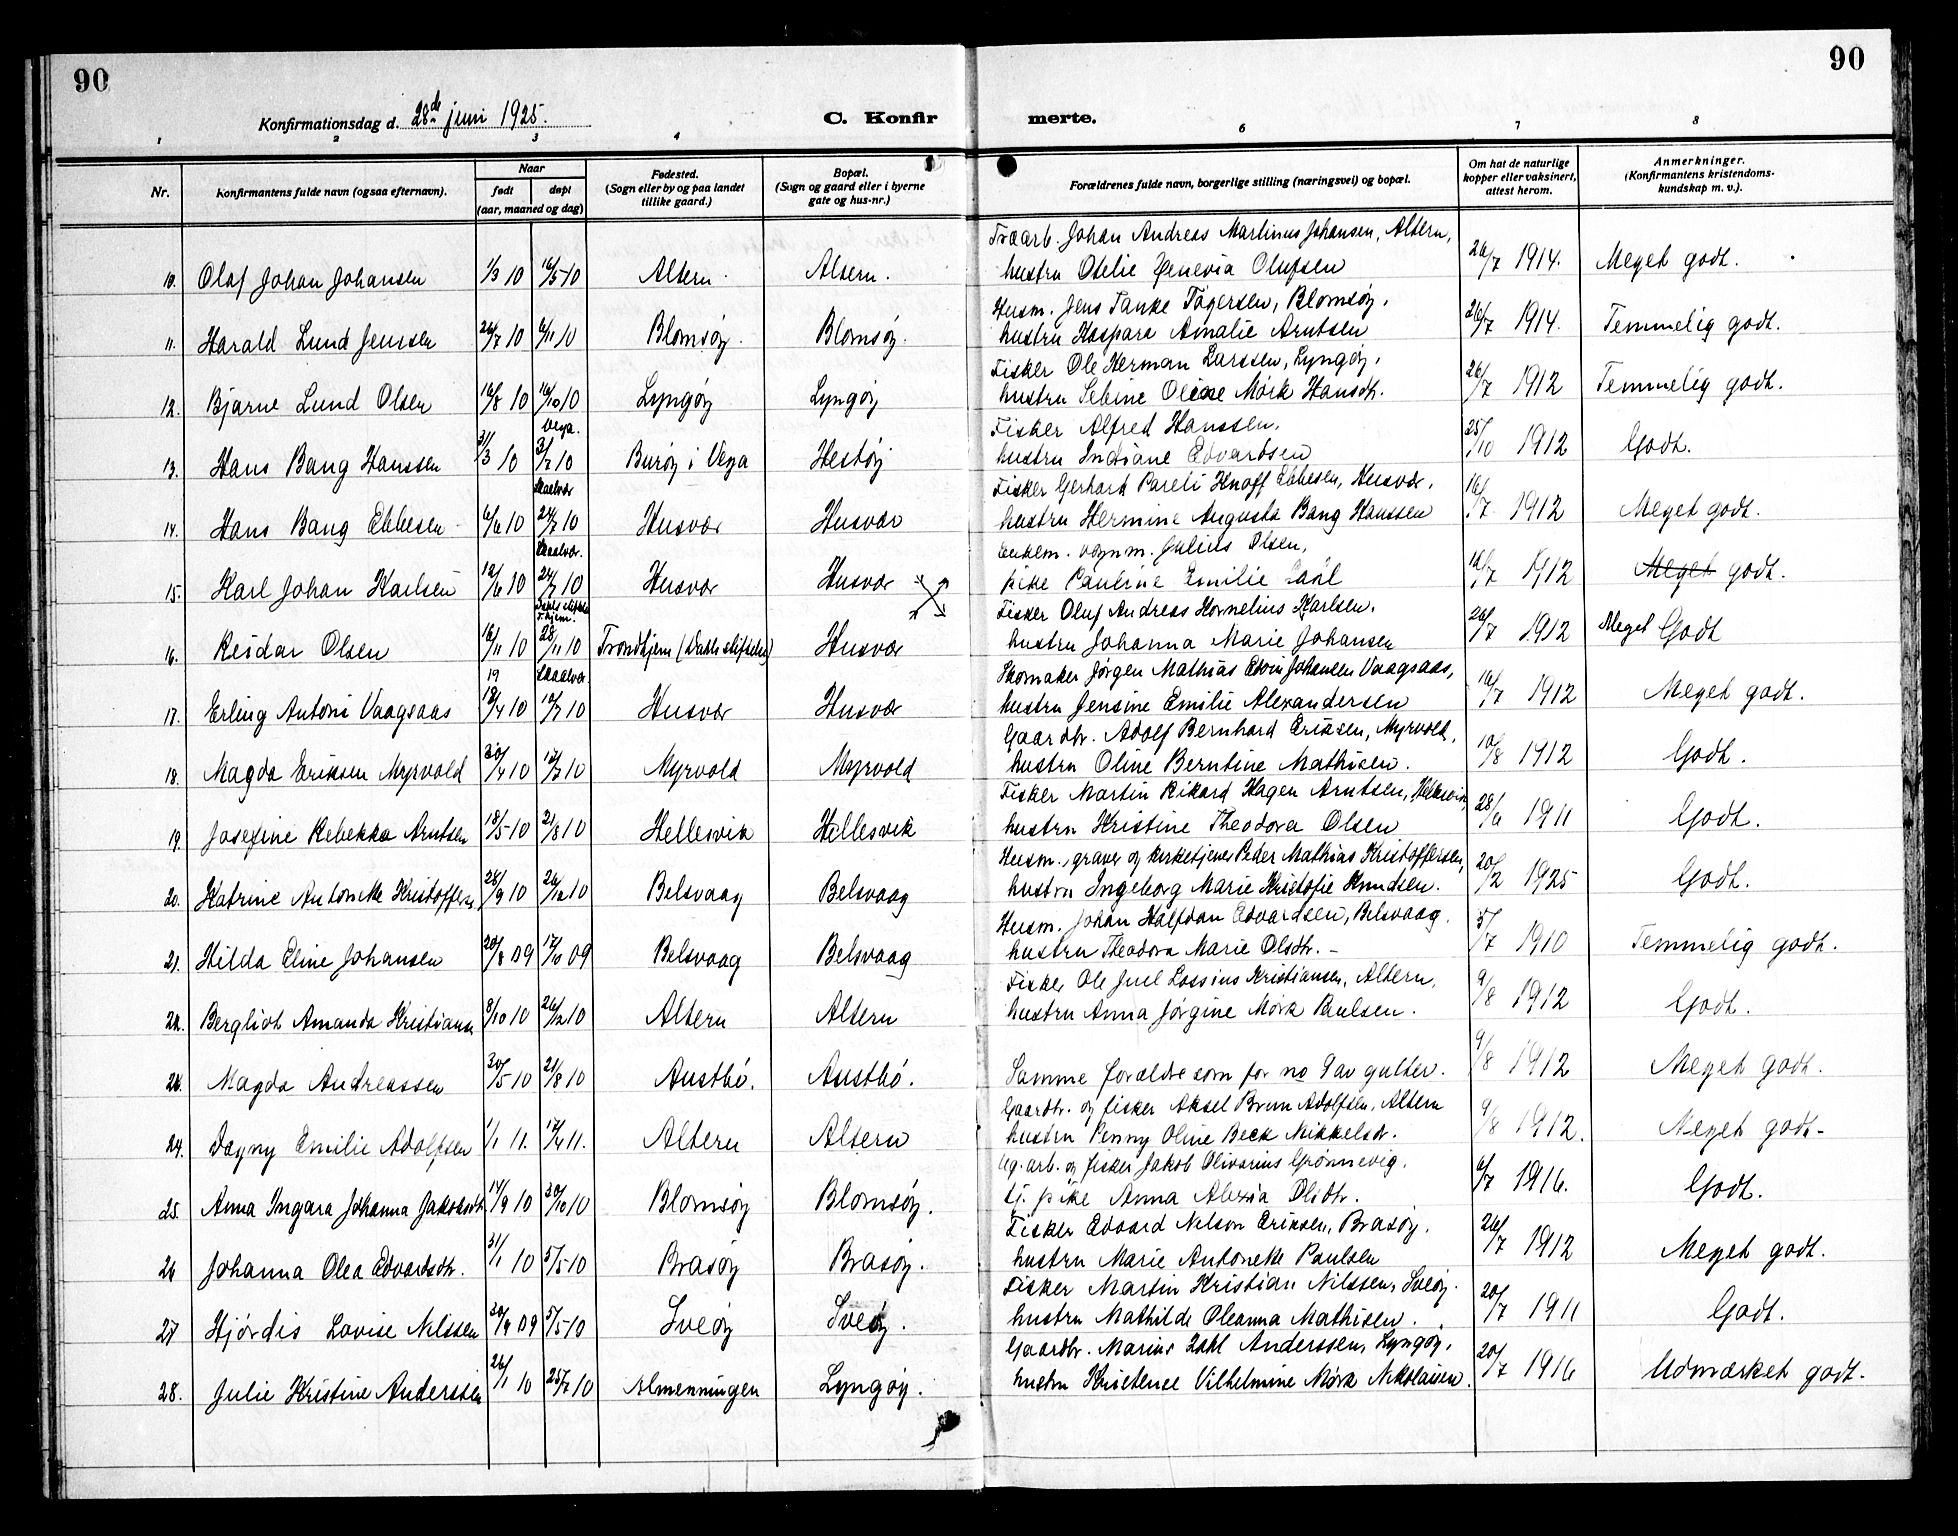 90
90
Konfirmationsdag d. 28de juni 1925.
C. Konfirmerte.
1 2 3 4 6 7 8
Nr.
Konfirmantens fulde navn (ogsaa efternavn).
Naar
født døpt
(aar, maaned og dag)
Fødested.
(Sogn eller by og paa landet
tillike gaard.)
Bopæl.
(Sogn og gaard eller i byerne
gate og hus-nr.)
Forældrenes fulde navn, borgerlige stilling (næringsvei) og bopæl.
Om hat de naturlige
kopper eller vaksinert,
attest herom.
Anmerkninger.
(Konfirmantens kristendoms-
kundskap m. v.).
Træarb. Johan Andreas Martinus Johansen, Altern,
10. Olaf Johan Johansen 1/3 10 16/5 10 Altern. Altern. hustru Otelie Olufsen 26/7 1914. Meget godt.
Husm. Jens Tanke Tøgersen, Blomsøy,
11. Harald Lund Jenssen 26/7 10 6/11 10 Blomsøy. Blomsøy. hustru Kaspara Amalie Arntsen 26/7 1914. Temmelig godt.
Fisker Ole Herman Larssen, Lyngøy,
12. Bjarne Lund Olsen 16/8 10 16/10 10 Lyngøy Lyngøy hustru Sebine Oline Mørk Hansdtr. 26/7 1912 Temmelig godt.
Vega. Fisker Alfred Hanssen,
13. Hans Bang Hanssen 31/3 10 3/7 10 Burøy i Vega Hestøy hustru Indiane Edvardsen 25/10 1912 Godt.
Skaalvær Fisker Gerhard Pareli Knoff Ebbesen, Husvær,
14. Hans Bang Ebbesen 6/6 10 24/7 10 Husvær Husvær hustru Hermine Augusta Bang Hanssen 16/7 1912 Meget godt.
Skaalvær. Enkem. Julius Olsen,
15. Karl Johan Karlsen 12/6 10 24/7 10 Husvær Husvær pike Pauline Emilie 16/7 1912 Meget godt.
Fisker Oluf Andreas Kornelius Karlsen,
16. Reidar Olsen 16/11 10 28/11 10 Trondhjem (Dahls stiftelse) Husvær hustru Johanna Marie Johansen 26/7 1912 Meget Godt
19 Skaalvær. Skomaker Jørgen Mathias Edvin Johansen Vaagsaas,
17. Erling Antoni Vaagsaas 18/4 10 10/7 10 Husvær Husvær hustru Jensine Emilie Alexandersen 16/7 1912 Meget godt.
Gaardbr. Adolf Bernhard Eriksen, Myrvold,
18. Magda Eriksen Myrvold 30/4 10 17/7 10 Myrvold Myrvold hustru Oline Berntine Mathisen. 10/8 1912 Godt.
Fisker Martin Rikard Hagen Arntsen, Hellesvik,
19. Josefine Rebekka Arntsen 18/5 10 21/8 10 Hellesvik Hellesvik hustru Kristine Theodora Olsen 28/6 1911 Godt.
Husm., graver og kirketjener Peder Mathias Kristoffersen,
20. Katrine Antonette Kristoffersen 28/9 10 26/12 10 Belsvaag Belsvaag hustru Ingeborg Marie Kristofie Knudsen. 20/2 1925 Godt.
Husm. Johan Halfdan Edvardsen, Belsvaag.
21. Hilda Eline Johansen 20/8 09 17/10 09 Belsvaag Belsvaag hustru Theodora Marie Olsdtr. 5/7 1910 Temmelig godt.
Fisker Ole Juel Lossius Kristiansen, Altern,
22. Bergliot Amanda Kristiansen 8/10 10 26/12 10 Altern Altern hustru Anna Jørgine Mørk Paulsen. 9/8 1912 Godt.
Magda Andreassen 30/5 10 21/8 10 Austbø. Austbø. Samme forældre som for no 9 av gutter. 9/8 1912 Meget godt.
Gaardbr. og fisker Aksel Brun Adolfsen, Altern
24. Dagny Emilie Adolfsen 1/1 11. 17/4 11. Altern Altern hustru Penny Oline Beck Mikkelsdr. 9/8 1912. Meget godt.
Ug. arb. og fisker Jakob Olivarius Grønnevig,
25. Anna Ingara Johanna Jakobsdtr. 14/9 10 30/10 10 Blomsøy Blomsøy. tj. pike Anna Alexia Olsdtr. 6/7 1916. Godt.
Fisker Edvard Nilson Eriksen, Brasøy.
26 Johanna Olea Edvardsdtr. 31/1 10 5/5 10 Brasøy Brasøy. hustru Marie Antonette Paulsen 26/7 1912 Meget godt.
Fisker Martin Kristian Nilssen, Sveøy.
27 Hjørdis Lovise Nilssen 30/9 09 5/5 10 Sveøy Sveøy. hustru Mathilde Oleanna Mathisen. 20/7 1911 Godt.
Gaardbr. Marius Zahl Anderssen, Lyngøy,
28. Julie Kristine Anderssen 26/1 10 25/7 10 Almenningen Lyngøy. hustru Kristense Vilhelmine Mørk Nikolaisen. 20/7 1916 Udmærket godt.